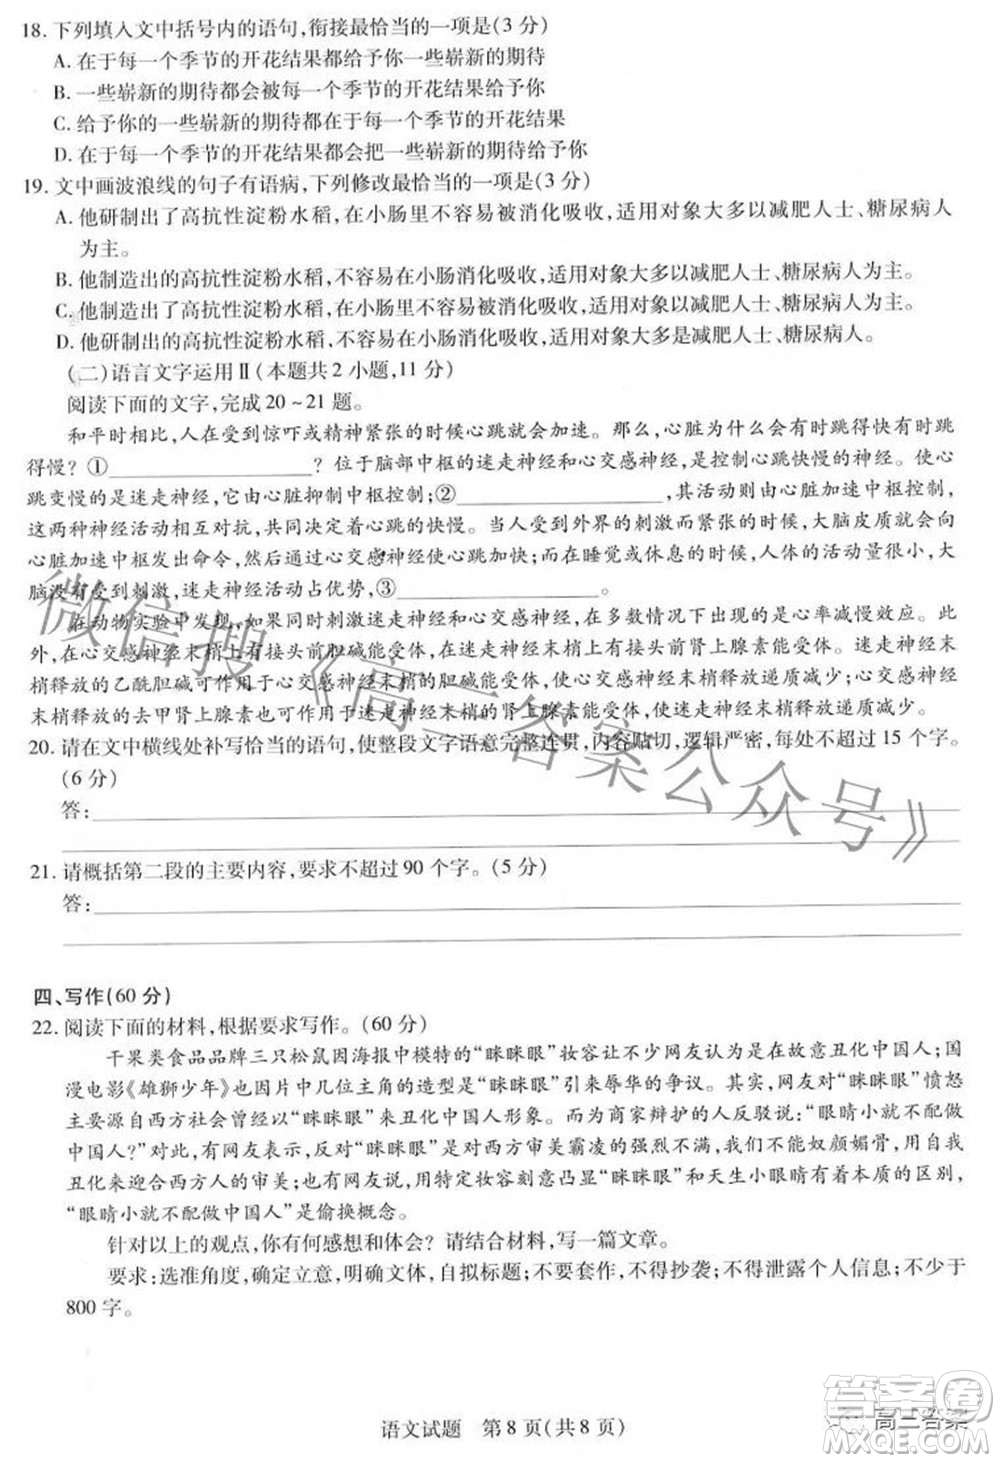 18. 下列填入文中括号内的语句,衔接最恰当的一项是(3 分)
A. 在于每一个季节的开花结果都给予你一些崭新的期待
B. 一些崭新的期待都会被每一个季节的开花结果给予你
C. 给予你的一些崭新的期待都在于每一个季节的开花结果
D. 在于每一个季节的开花结果都会把一些崭新的期待给予你
19. 文中画波浪线的句子有语病,下列修改最恰当的一项是(3 分)
A. 他研制出了高抗性淀粉水稻,在小肠里不容易被消化吸收,适用对象大多以减肥人士、糖尿病人
为主。
B. 他制造出的高抗性淀粉水稻,不容易在小肠消化吸收,适用对象大多以减肥人士、糖尿病人为主。
C. 他制造出了高抗性淀粉水稻,在小肠里不容易被消化吸收,适用对象大多是减肥人士、糖尿病人。
D. 他研制出的高抗性淀粉水稻,不容易在小肠里被消化吸收,适用对象大多是减肥人士、糖尿病人。
(二)语言文字运用Ⅱ(本题共 2 小题,11 分)
阅读下面的文字,完成 20~21 题。
和平时相比,人在受到惊吓或精神紧张的时候心跳就会加速。那么,心脏为什么会有时跳得快有时跳
得慢? ①____________? 位于脑部中枢的迷走神经和心交感神经,是控制心跳快慢的神经。使心
跳变慢的是迷走神经,它由心脏抑制中枢控制;②____________,其由心脏加速中枢控制,
这两种神经活动相互对抗,共同决定着心跳的快慢。当人受到外界的刺激而紧张的时候,大脑皮质就会给
心脏加速中枢发出命令,然后心交感神经使心跳加快;而在睡觉或休息的时候,人体的活动量会减少,大
脑没有受到刺激,迷走神经活动占优势,③____________。
在动物实验中发现,如果同时刺激迷走神经和心交感神经,在多数情况下出现的是心率减慢效应。此
外,在心交感神经末梢上有接头前胆碱能受体。迷走神经末梢上有接头前肾上腺素能受体。迷走神经
末梢释放的乙酰胆碱可作用于心交感神经末梢的胆碱能受体,使心交感神经末梢释放递质减少;心交感神经
末梢释放的去甲肾上腺素也可作用于迷走神经末梢的肾上腺素能受体,使迷走神经末梢释放递质减少。
20. 请在文中横线处补写恰当的语句,使整段文字语意完整连贯,内容贴切,逻辑严密,每处不超过 15 个字。
(6 分)
答:
21. 请概括第二段的主要内容,要求不超过 90 个字。(5 分)
答:
四、写作(60 分)
22. 阅读下面的材料,根据要求写作。(60 分)
干果类食品品牌三只松鼠因海报中模特的“眯眯眼”妆容让不少网友认为在故意丑化中国人;国
漫电影《雄狮少年》也因片中几位主角的造型是“眯眯眼”引发辱华的争议。其实,网友对“眯眯眼”愤怒
主要源自西方社会曾经以“眯眯眼”来丑化中国人形象。而为商家辩护的人反驳说,“眼睛小就不配做
中国人”;有网友表示,反对“眯眯眼”是对西方审美霸凌的强烈不满,我们不能奴颜媚骨,用自我
丑化来迎合西方人的审美;还有网友表示,通过特定妆容刻意凸显“眯眯眼”和天生小眼睛有着本质的区别,
“眼睛小就不配做中国人”是偷换概念。
针对以上的观点,你有何感想和体会?请结合材料,写一篇文章。
要求:选准角度,确定立意,明确文体,自拟标题;不要套作,不得抄袭;不得泄露个人信息;不少于
800 字。
语文试题 第 8 页(共 8 页)
微信搜《高三答案公众号》
答案圈
高三答案